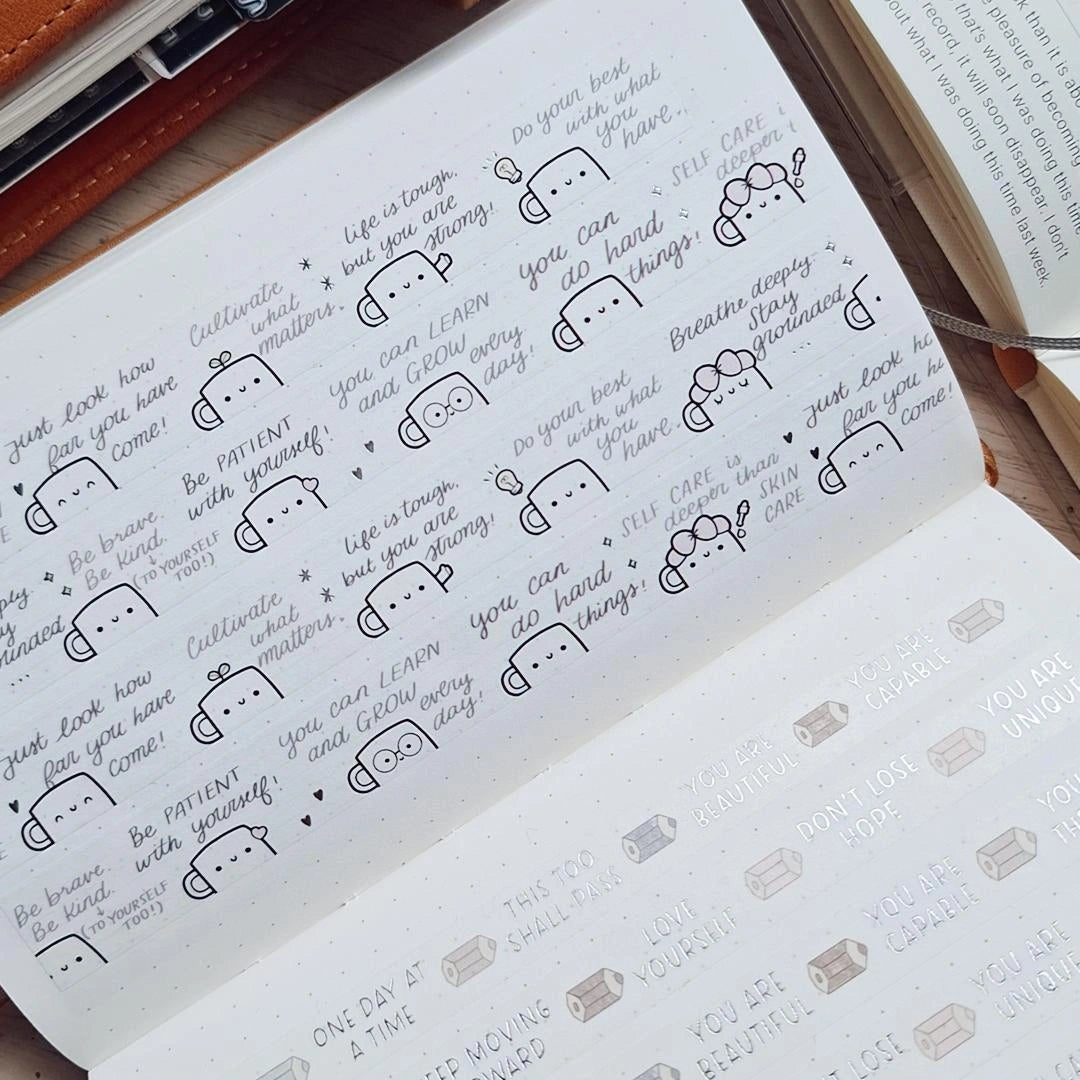 Do your best
with what
you
have.
SELF CARE
deeper
life is tough,
but you are
strong!
you can
do hard
things!
Breathe deeply.
Stay
grounded
...
Cultivate
what
matters.
you can LEARN
and GROW every
day!
Do your best
with what
you
have.
just look
far you
come!
just look how
far you have
come!
Be PATIENT
with yourself!
life is tough,
but you are
strong!
SELF CARE is
deeper than
SKIN
CARE
Be brave.
Be kind.
(TO YOURSELF
TOO!)
Cultivate
what
matters.
you can
do hard
things!
...
just look how
far you have
come!
you can LEARN
and GROW every
day!
Be PATIENT
with yourself!
Be brave.
Be kind.
(TO YOURSELF
TOO!)
than it is
pleasure of becoming
that's what I was doing this
record, it will soon disappear. I don't
what I was doing this time last week.
YOU ARE
CAPABLE
YOU ARE
UNIQUE
YOU ARE
BEAUTIFUL
DON'T LOSE
HOPE
THIS TOO
SHALL PASS
LOVE
YOURSELF
YOU ARE
CAPABLE
ONE DAY AT
A TIME
MOVING
YOU ARE
BEAUTIFUL
LOSE
YOU ARE
UNIQUE